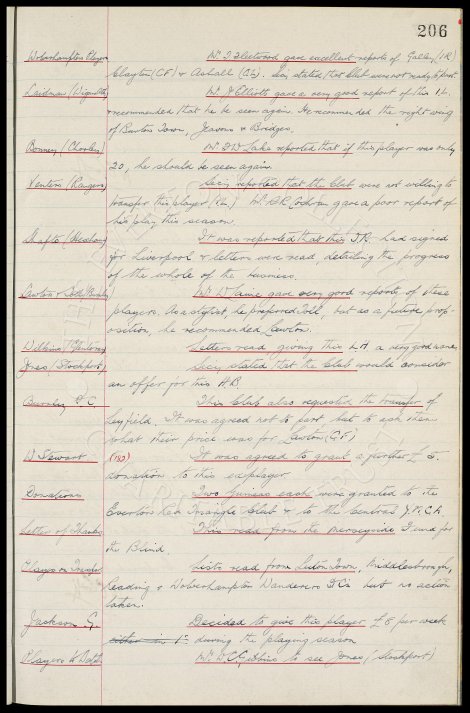 206
Wolverhampton Players Mr. J. Fleetwood gave excellent reports of Galley (I.R)
Clayton (C.F) & Ashall (O.L). Secy stated that Club were not ready to part.
Laidman (Wigan Ath) Mr. J. Elliotts gave a very good report of this I.L.
& recommended that he be seen again. He recommended the right wing
of Burton Town, Jeavons & Bridges.
Bonney (Chorley) Mr. Lake reported that if this player was only
20, he should be seen again.
Venters (Rangers) Secy reported that the Club were not willing to
transfer this player (I.L.) Mr. Cochran gave a poor report of
his play this season.
Shafto (Hexham) It was reported that this I.R. had signed
for Liverpool & letters were read, detailing the progress
of the whole of the business.
Lawton & (Burnley) Mr. gave very good reports of these
players. As a stylist he preferred but as a future prop-
osition, he recommended Lawton.
Letters read giving this L.H a very good name.
Jones (Stockport) Secy stated that the Club would consider
an offer for this H.B.
Burnley F.C. This Club also requested the transfer of
Leyfield. It was agreed not to part but to ask them
what their price was for Lawton (C.F)
W. Stewart (189) It was agreed to grant a further £5
donation to this ex player.
Donations Two guineas each were granted to the
Everton Red Triangle Club & to the Central Y.M.C.A
Letter of Thanks This read from the Merseyside Fund for
the Blind.
Players on Transfer Lists read from Luton Town, Middlesbrough,
Reading & Wolverhampton Wanderers F.Cs but no action
taken.
Jackson G. Decided to give this player £8 per week
either in 1st during the playing season
Players to Watch Mr. W.C. Gibbins to see Jones (Stockport)